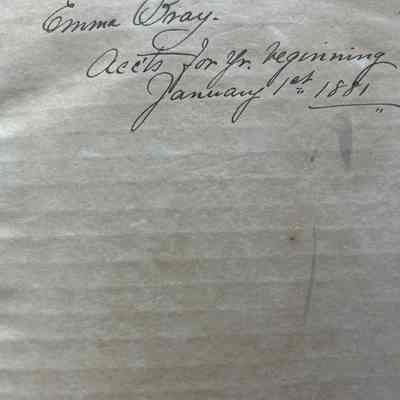 Emma Bray.
Accts for Yr. beginning
January 1st 1881